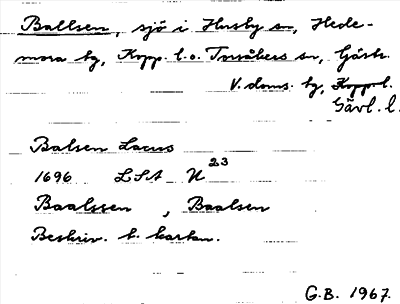 Ballsen, sjö i Husby sn, Hede-
mora bg, Kopp. l. o. Torsåkers sn, Gästr.
V. doms. bg, Kopp. l.
Gävl. l.
Balsen Lacus
1696 LSA N 23
Baalssen , Baalsen
Beskriv. t. kartan.
G.B. 1967.